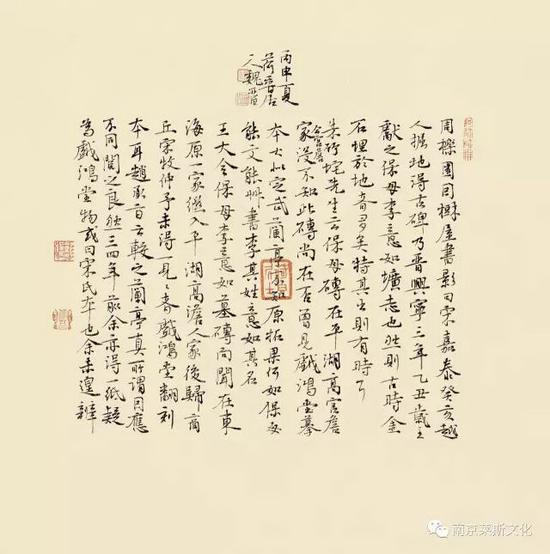 丙申夏
周櫟園因樹屋書影曰宋嘉泰癸亥越
人掘地得古碑乃晉興寧三年乙丑歲王
獻之保母李意如壙志也然則古時金
石埋於地者多矣特其出則有時耳
朱竹垞先生云保母磚在平湖高宮詹
家宮詹沒不知此磚尚在否曾見戲鴻堂摹
本大似定武蘭亭不知原拓果何如保母
能文能艸書李其姓意如其名
王大令保母李意如墓磚向聞在東
海原一家繼入平湖高澹人家後歸商
丘宋牧仲予未得一見之者戲鴻堂翻刻
本耳趙承旨云較之蘭亭真所謂因應
不同閱之良然三四年前余亦得一紙疑
為戲鴻堂物或曰宋氏本也余未遑辨
南京莱斯文化